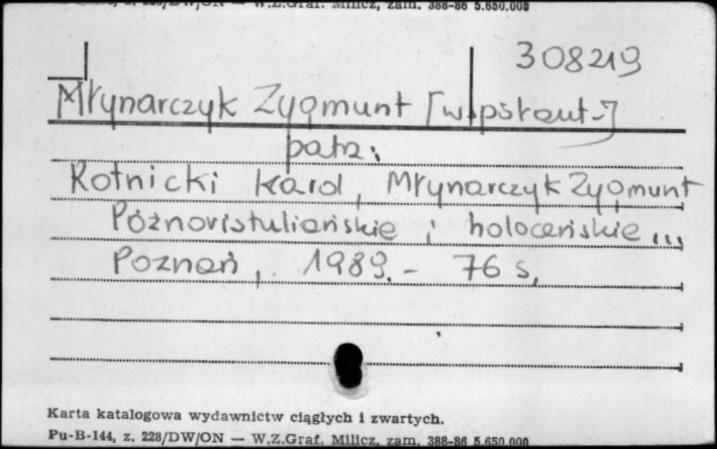 W.Z.Graf. Milicz, zam. 388-86 5.650.000
308219
Młynarczyk Zygmunt [współaut.]
patrz:
Rotnicki Karol, Młynarczyk Zygmunt
Późnovistuliańskie i holoceńskie...
Poznań, 1989. - 76 s.
Karta katalogowa wydawnictw ciągłych i zwartych.
Pu-B-144, z. 228/DW/ON — W.Z.Graf. Milicz, zam. 388-86 5.650.000